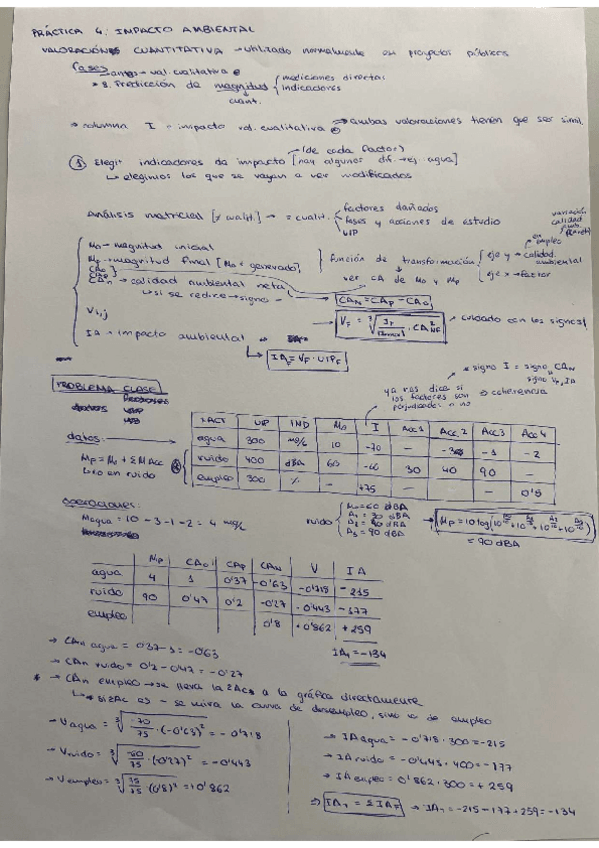 PRÁCTICA 4: IMPACTO AMBIENTAL
VALORACIÓN CUANTITATIVA → utilizado normalmente en proyectos públicos
Fases
→ val. cualitativa
→ 8. Predicción de magnitud cuant. { mediciones directas
indicadores
→ columna I = impacto val. cualitativa ⇒ ambas valoraciones tienen que ser simil.
① Elegir indicadores de impacto [hay algunos dif. → ej. agua]
(de cada factor)
↳ elegimos los que se vayan a ver modificados
Análisis matricial [≠ cualit.] → = cualit. { factores dañados
fases y acciones de estudio
UIP
M₀ → magnitud inicial
Mp → magnitud final [M₀ + generado]
CA₀
CAp
CAn → calidad ambiental neta
↳ si se reduce → signo -
función de transformación
ver CA de M₀ y Mp
eje y → calidad ambiental
eje x → factor
en empleo
variación calidad amb.
CAN = CAP - CA0
Vi,j
cuidado con los signos!
IA = impacto ambiental
IAF = VF · UIPF
* signo I = signo CAN
signo VF, IA
⇒ coherencia
ya nos dice si los factores son perjudicados o no
PROBLEMA CLASE
datos:
FACT UIP IND M₀ I Acc1 Acc.2 Acc3 Acc4
agua 300 mg/l 10 -70 - -3 -1 -2
ruido 400 dBA 60 -60 30 40 90 -
empleo 300 % - +75 - - 0'8
Mp = M₀ + ΣMAcc
operaciones:
Magua = 10 - 3 - 1 - 2 = 4 mg/l
ruido { M₀ = 60 dBA
A₁ = 30 dBA
A₂ = 40 dBA
A₃ = 90 dBA
= 90 dBA
Mp CA₀ CAp CAN V IA
agua 4 1 0'37 -0'63 -0'718 -215
ruido 90 0'47 0'2 -0'27 -0'443 -177
empleo 0'8 +0'862 +259
IA₁ = -134
→ CAn agua = 0'37 - 1 = -0'63
→ CAn ruido = 0'2 - 0'47 = -0'27
* → CAn empleo → se lleva la ΣAcs a la gráfica directamente
↳ * si ΣAc es - se mira la curva de desempleo, sino la de empleo
→ Vagua = ∛(-70/75 · (-0'63)²) = -0'718
→ Vruido = ∛(-60/75 · (-0'27)²) = -0'443
→ Vempleo = ∛(75/75 · (0'8)²) = +0'862
→ IAagua = -0'718 · 300 = -215
→ IAruido = -0'443 · 400 = -177
→ IAempleo = 0'862 · 300 = +259
⇒ IA₁ = ΣIAF → IA₁ = -215 - 177 + 259 = -134